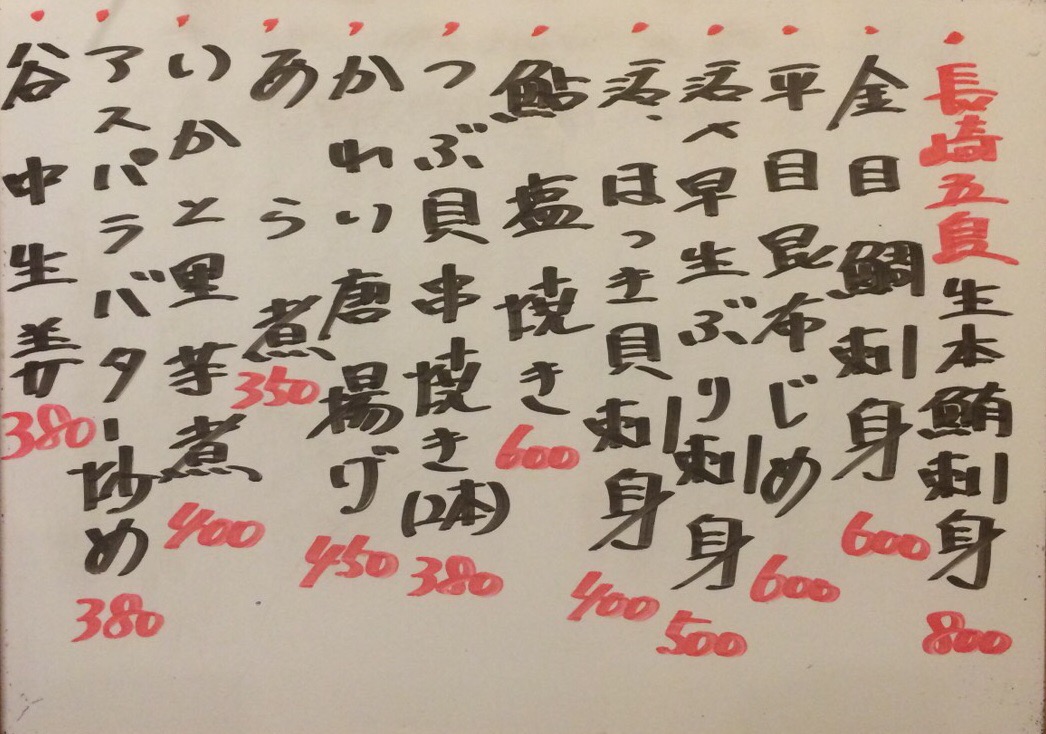 長崎五島生本鮪刺身 800
金目鯛刺身 600
平目昆布じめ 600
活〆早生ぶり刺身 500
活、ほっき貝刺身 400
鮎塩焼き 600
つぶ貝串焼き(2本) 380
かれい唐揚げ 450
あら煮 350
いかと里芋煮 400
アスパラバター炒め 380
谷中生姜 380